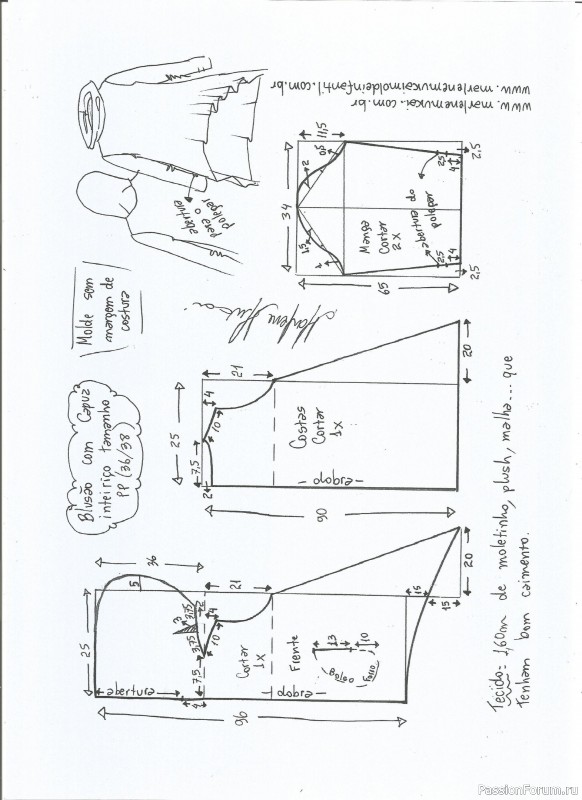 www.marlenemukai.com.br
www.marlenemukaimoldeinfantil.com.br
abertura
para o
polegar
Molde sem
margem de
costura
Blusão com Capuz
inteiriço tamanho
PP (36/38)
34
11,5
2
0,5
1,5
1
Manga
Cortar
2x
abertura do
polegar
2,5
4
2,5
2,5
4
2,5
65
Marlene Mukai
25
7,5
2
10
4
21
Costas
Cortar
1x
dobra
90
20
36
25
5
3
3,75
3,75
2
7,5
10
4
21
abertura
4
Cortar
1x
Frente
dobra
13
10
Bolso
Forro
15
15
20
96
Tecido= 1,60m de moletinho, plush, malha... que
Tenham bom caimento.
PassionForum.ru